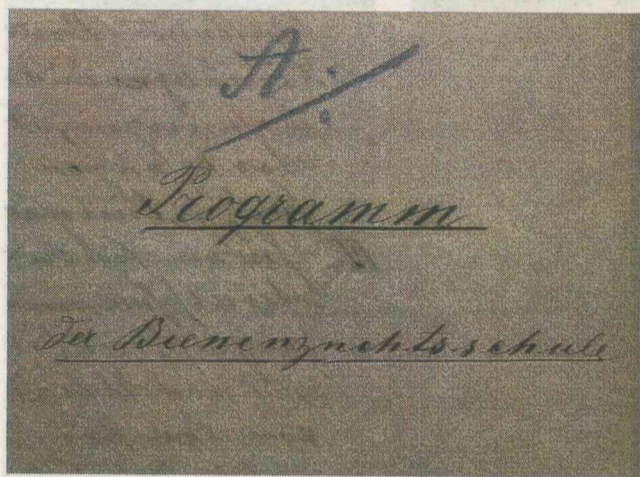 A:
Programm
der Bienenzuchtsschule